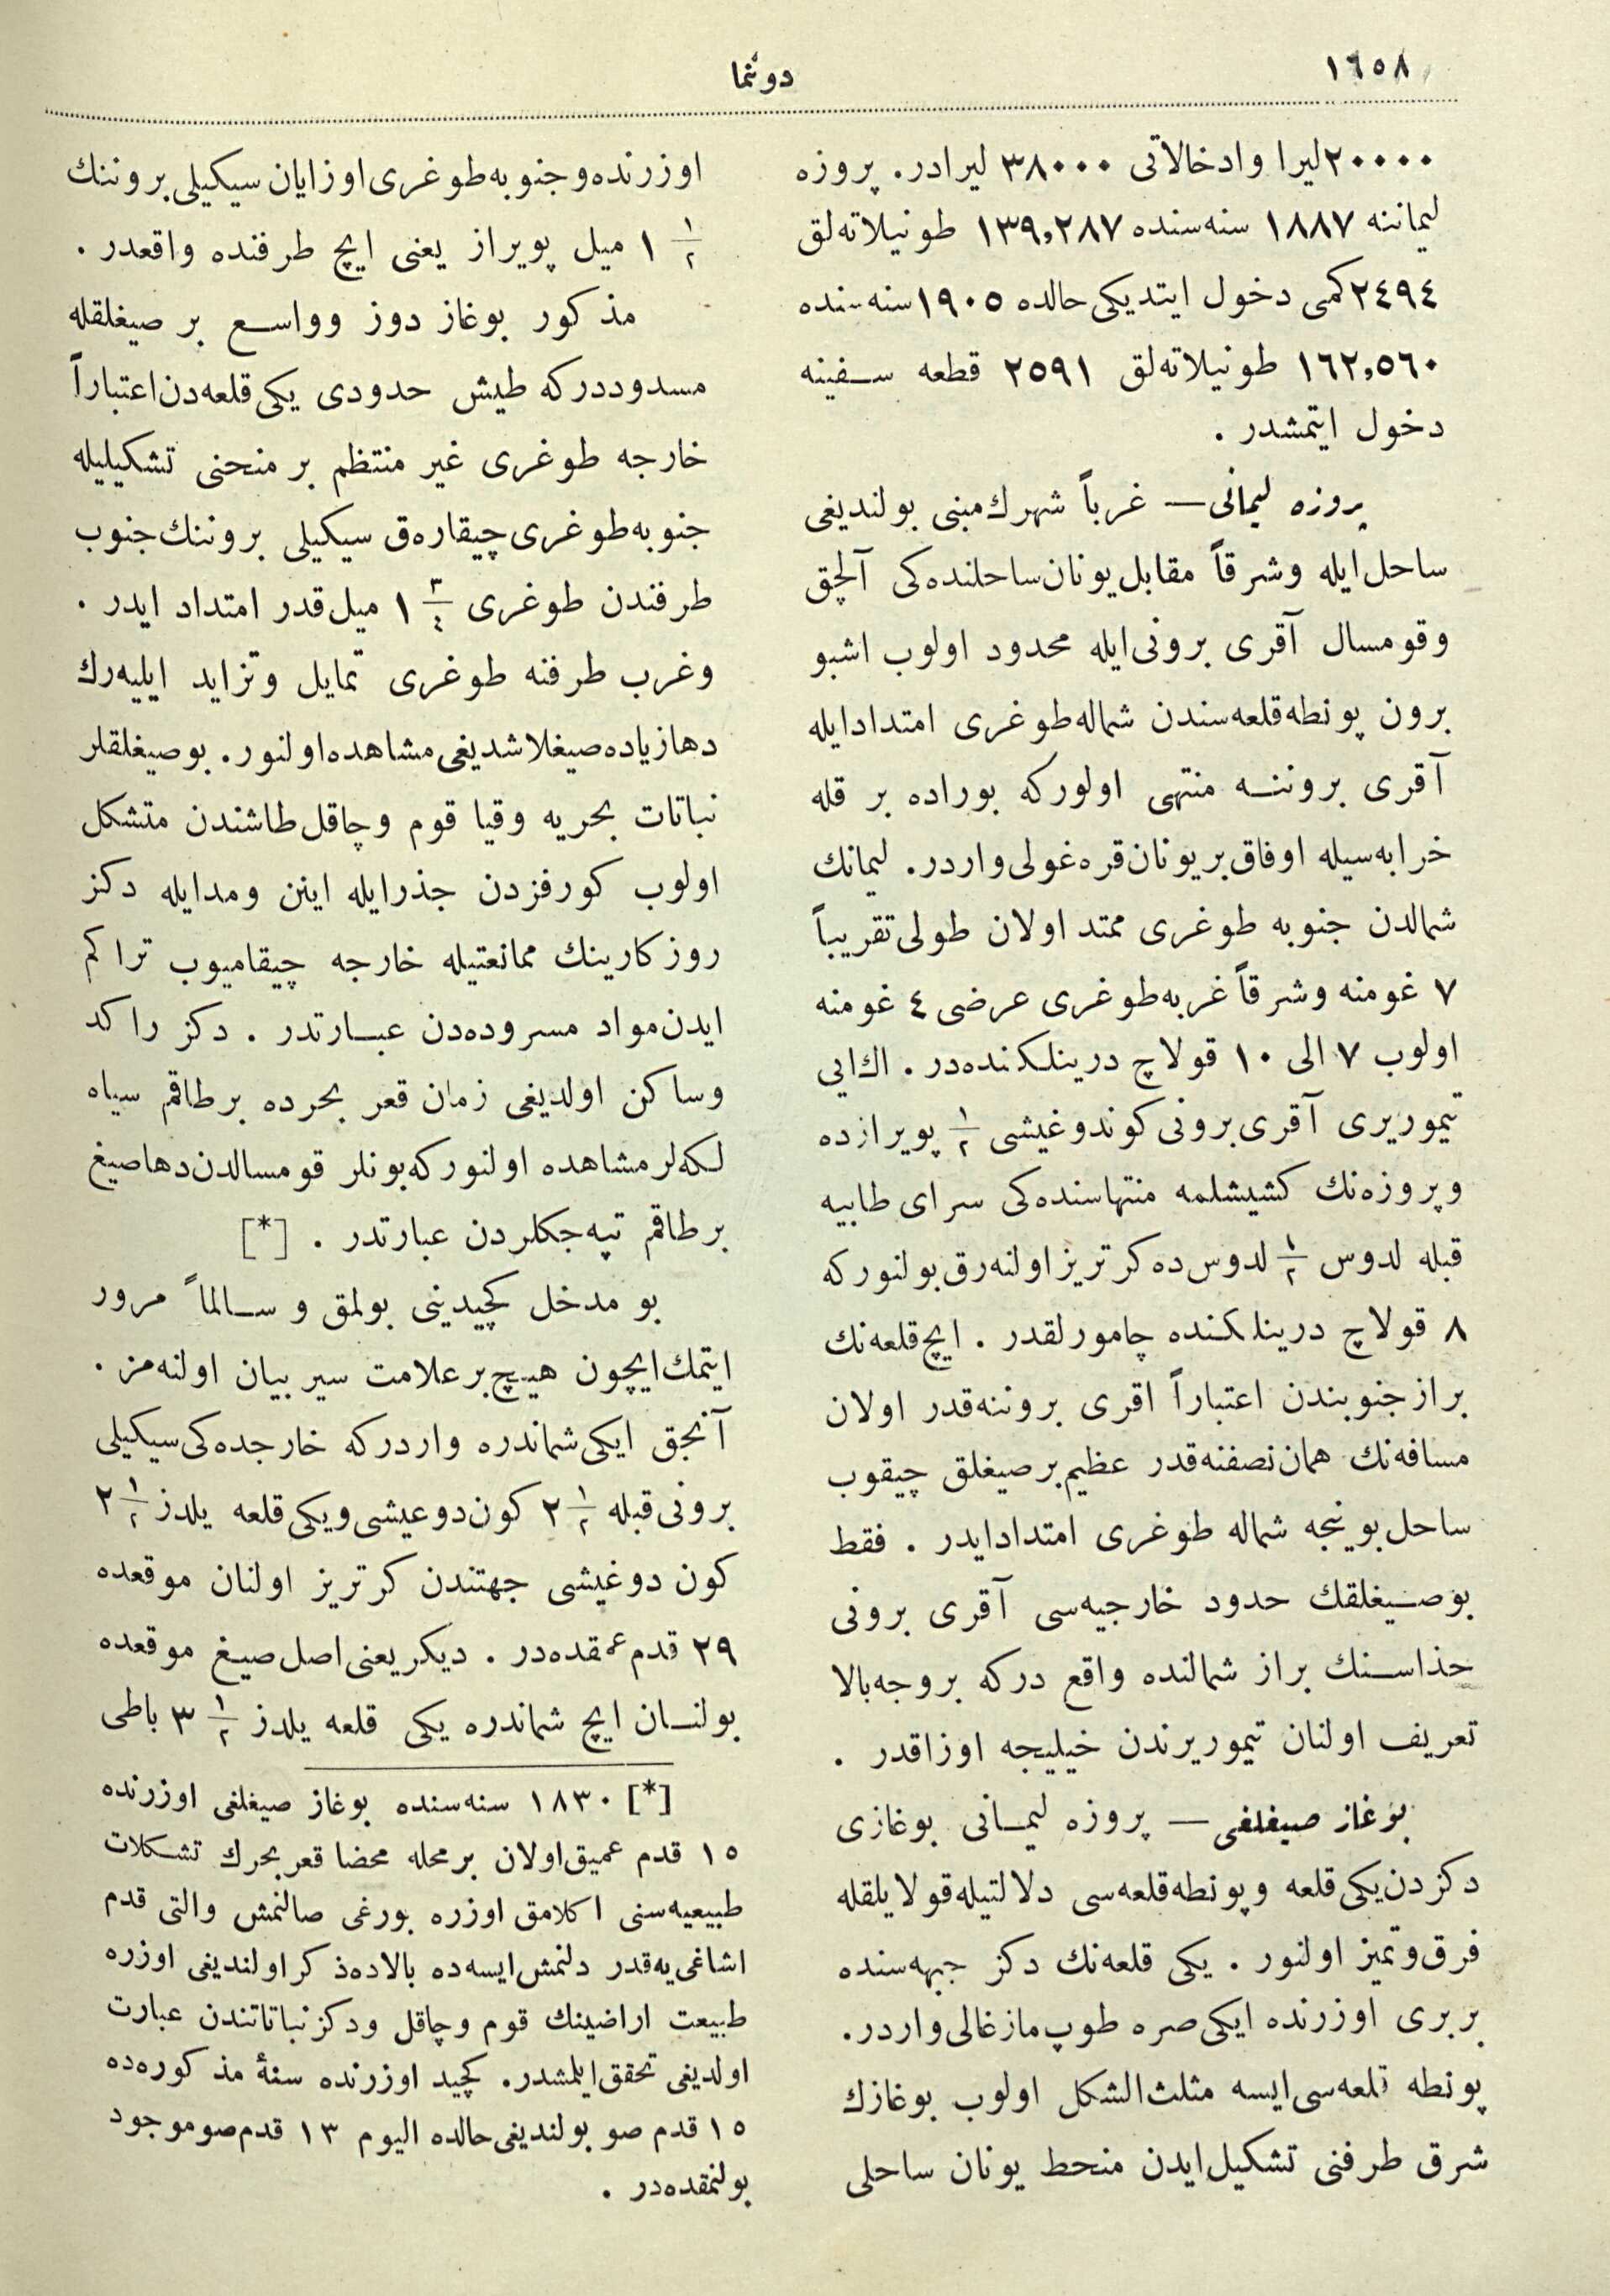 ١٦٥٨
دوننما
٢٠٠٠٠ ليرا وادخالاتى ٣٨٠٠٠ ليرادر. پروزه
ليماننه ١٨٨٧ سنه‌سنده ١٣٩,٢٨٧ طونيلاته‌لق
٢٤٩٤ كمى دخول ايتديكى حالده ١٩٠٥ سنه‌سنده
١٦٢,٥٦٠ طونيلاته‌لق ٢٥٩١ قطعه سفينه
دخول ايتمشدر .
پروزه ليمانى — غرباً شهرك مبنى بولنديغى
ساحل ايله وشرقاً مقابل يونان ساحلنده‌كى آلچق
وقومسال آقرى برونى ايله محدود اولوب اشبو
برون پونطه قلعه‌سندن شماله طوغرى امتداد ايله
آقرى بروننه منتهى اولوركه بوراده بر قله
خرابه‌سيله اوفاق بر يونان قره‌غولى واردر. ليمانك
شمالدن جنوبه طوغرى ممتد اولان طولى تقريباً
٧ غومنه وشرقاً غربه طوغرى عرضى ٤ غومنه
اولوب ٧ الى ١٠ قولاچ درينلكنده‌در . اك ايى
تيموريرى آقرى برونى كوندوغيشى ١/٢ پويرازده
وپروزه‌نك كشيشلمه منتهاسنده‌كى سراى طابيه
قبله لدوس ١/٢ لدوس ده كرتريز اولنه‌رق بولنوركه
٨ قولاچ درينلكنده چامورلقدر . ايچ قلعه‌نك
براز جنوبندن اعتباراً اقرى بروننه قدر اولان
مسافه‌نك همان نصفنه قدر عظيم بر صيغلق چيقوب
ساحل بوينجه شماله طوغرى امتداد ايدر . فقط
بوصيغلقك حدود خارجيه‌سى آقرى برونى
حذاسنك براز شمالنده واقع دركه بروجه بالا
تعريف اولنان تيموريرندن خيليجه اوزاقدر .
بوغاز صيغلغى — پروزه ليمانى بوغازى
دكزدن يكى قلعه وپونطه قلعه‌سى دلالتيله قولايلقله
فرق وتميز اولنور . يكى قلعه‌نك دكز جبهه‌سنده
بربرى اوزرنده ايكى صره طوپ مازغالى واردر.
پونطه قلعه‌سى ايسه مثلث الشكل اولوب بوغازك
شرق طرفنى تشكيل ايدن منحط يونان ساحلى
اوزرنده وجنوبه طوغرى اوزايان سيكيلى بروننك
١ ١/٢ ميل پويراز يعنى ايچ طرفنده واقعدر .
مذكور بوغاز دوز وواسع بر صيغلقله
مسدوددركه طيش حدودى يكى قلعه‌دن اعتباراً
خارجه طوغرى غير منتظم بر منحنى تشكيليله
جنوبه طوغرى چيقاره‌ق سيكيلى بروننك جنوب
طرفندن طوغرى ١ ٣/٤ ميل قدر امتداد ايدر .
وغرب طرفنه طوغرى تمايل وتزايد ايليه‌رك
دها زياده صيغلاشديغى مشاهده اولنور. بوصيغلقلر
نباتات بحريه وقيا قوم وچاقل طاشندن متشكل
اولوب كورفزدن جذرايله اينن ومدايله دكز
روزكارينك ممانعتيله خارجه چيقاميوب تراكم
ايدن مواد مسروده‌دن عبارتدر . دكز راكد
وساكن اولديغى زمان قعر بحرده برطاقم سياه
لكه‌لر مشاهده اولنوركه بونلر قومسالدن دها صيغ
برطاقم تپه‌جكلردن عبارتدر . [*]
بو مدخل كچيدينى بولمق و سالماً مرور
ايتمك ايچون هيچ بر علامت سير بيان اولنه‌مز .
آنجق ايكى شماندره واردركه خارجده‌كى سيكيلى
برونى قبله ٢ ١/٢ كون دوعيشى ويكى قلعه يلدز ٢ ١/٢
كون دوغيشى جهتندن كرتريز اولنان موقعده
٢٩ قدم عمقده‌در . ديكر يعنى اصل صيغ موقعده
بولنان ايچ شماندره يكى قلعه يلدز ٣ ١/٢ باطى
[*] ١٨٣٠ سنه‌سنده بوغاز صيغلغى اوزرنده
١٥ قدم عميق اولان بر محله محضا قعر بحرك تشكلات
طبيعيه‌سنى اكلامق اوزره بورغى صالنمش والتى قدم
اشاغى‌يه قدر دلنمش ايسه‌ده بالاده ذكر اولنديغى اوزره
طبيعت اراضينك قوم وچاقل ودكز نباتاتندن عبارت
اولديغى تحقق ايلمشدر. كچيد اوزرنده سنهٔ مذكوره‌ده
١٥ قدم صو بولنديغى حالده اليوم ١٣ قدم صو موجود
بولنمقده‌در .